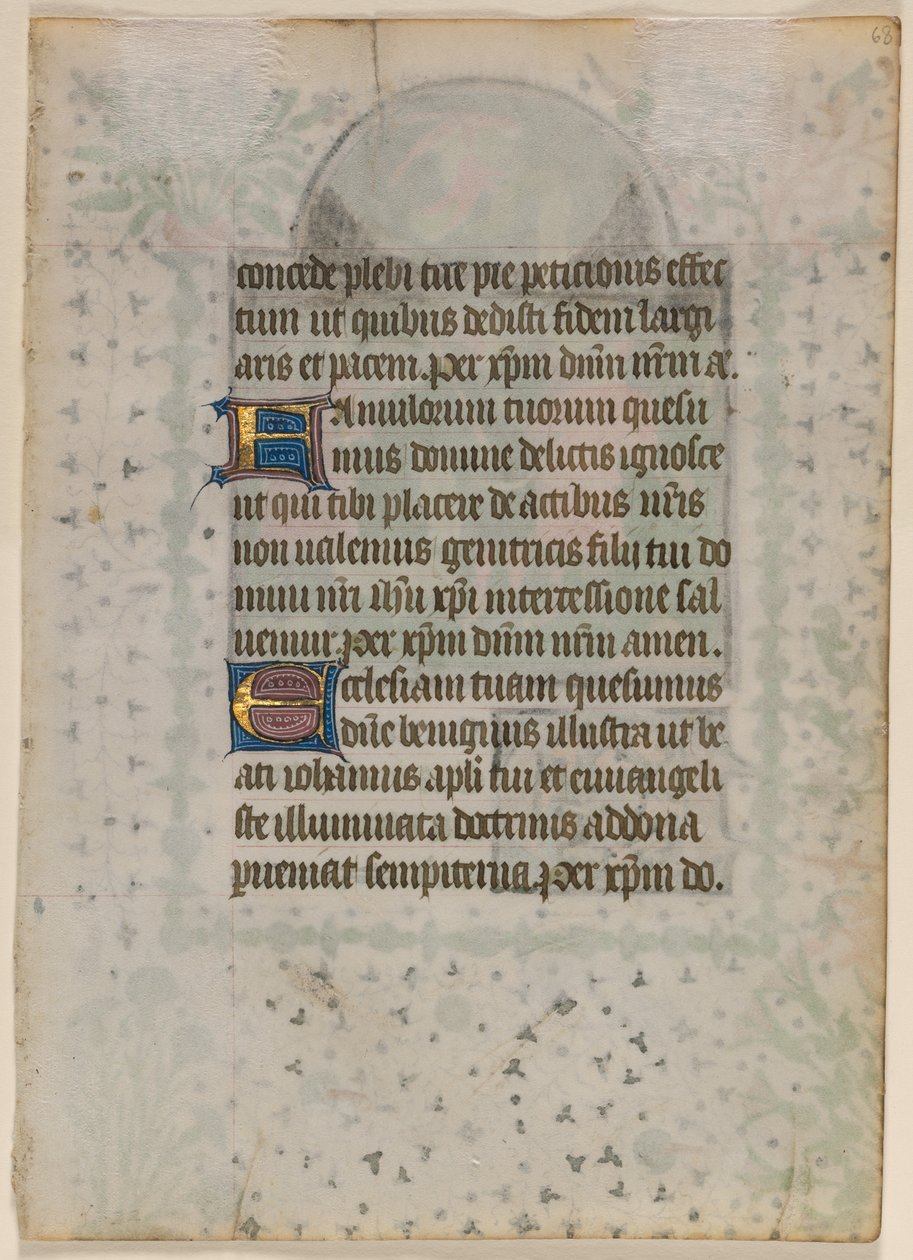 68
concede plebi tue p̃ie peticionis effec
tum ut quibus dedisti fidem largi
aris et pacem. Per xp̃m dñm nr̃m am̃.
Famulorum tuorum quesu
mus domine delictis ignosce
ut qui tibi placere de actibus nr̃is
non ualemus genitricis filij tui do
mini nr̃i ih̃u xp̃i intercessione sal
uemur. Per xp̃m dñm nr̃m amen.
Ecclesiam tuam quesumus
dñe benignus illustra ut be
ati iohannis apl̃i tui et euuangeli
ste illuminata doctrinis ad dona
ꝑueniat sempiterna. Per xp̃m do.